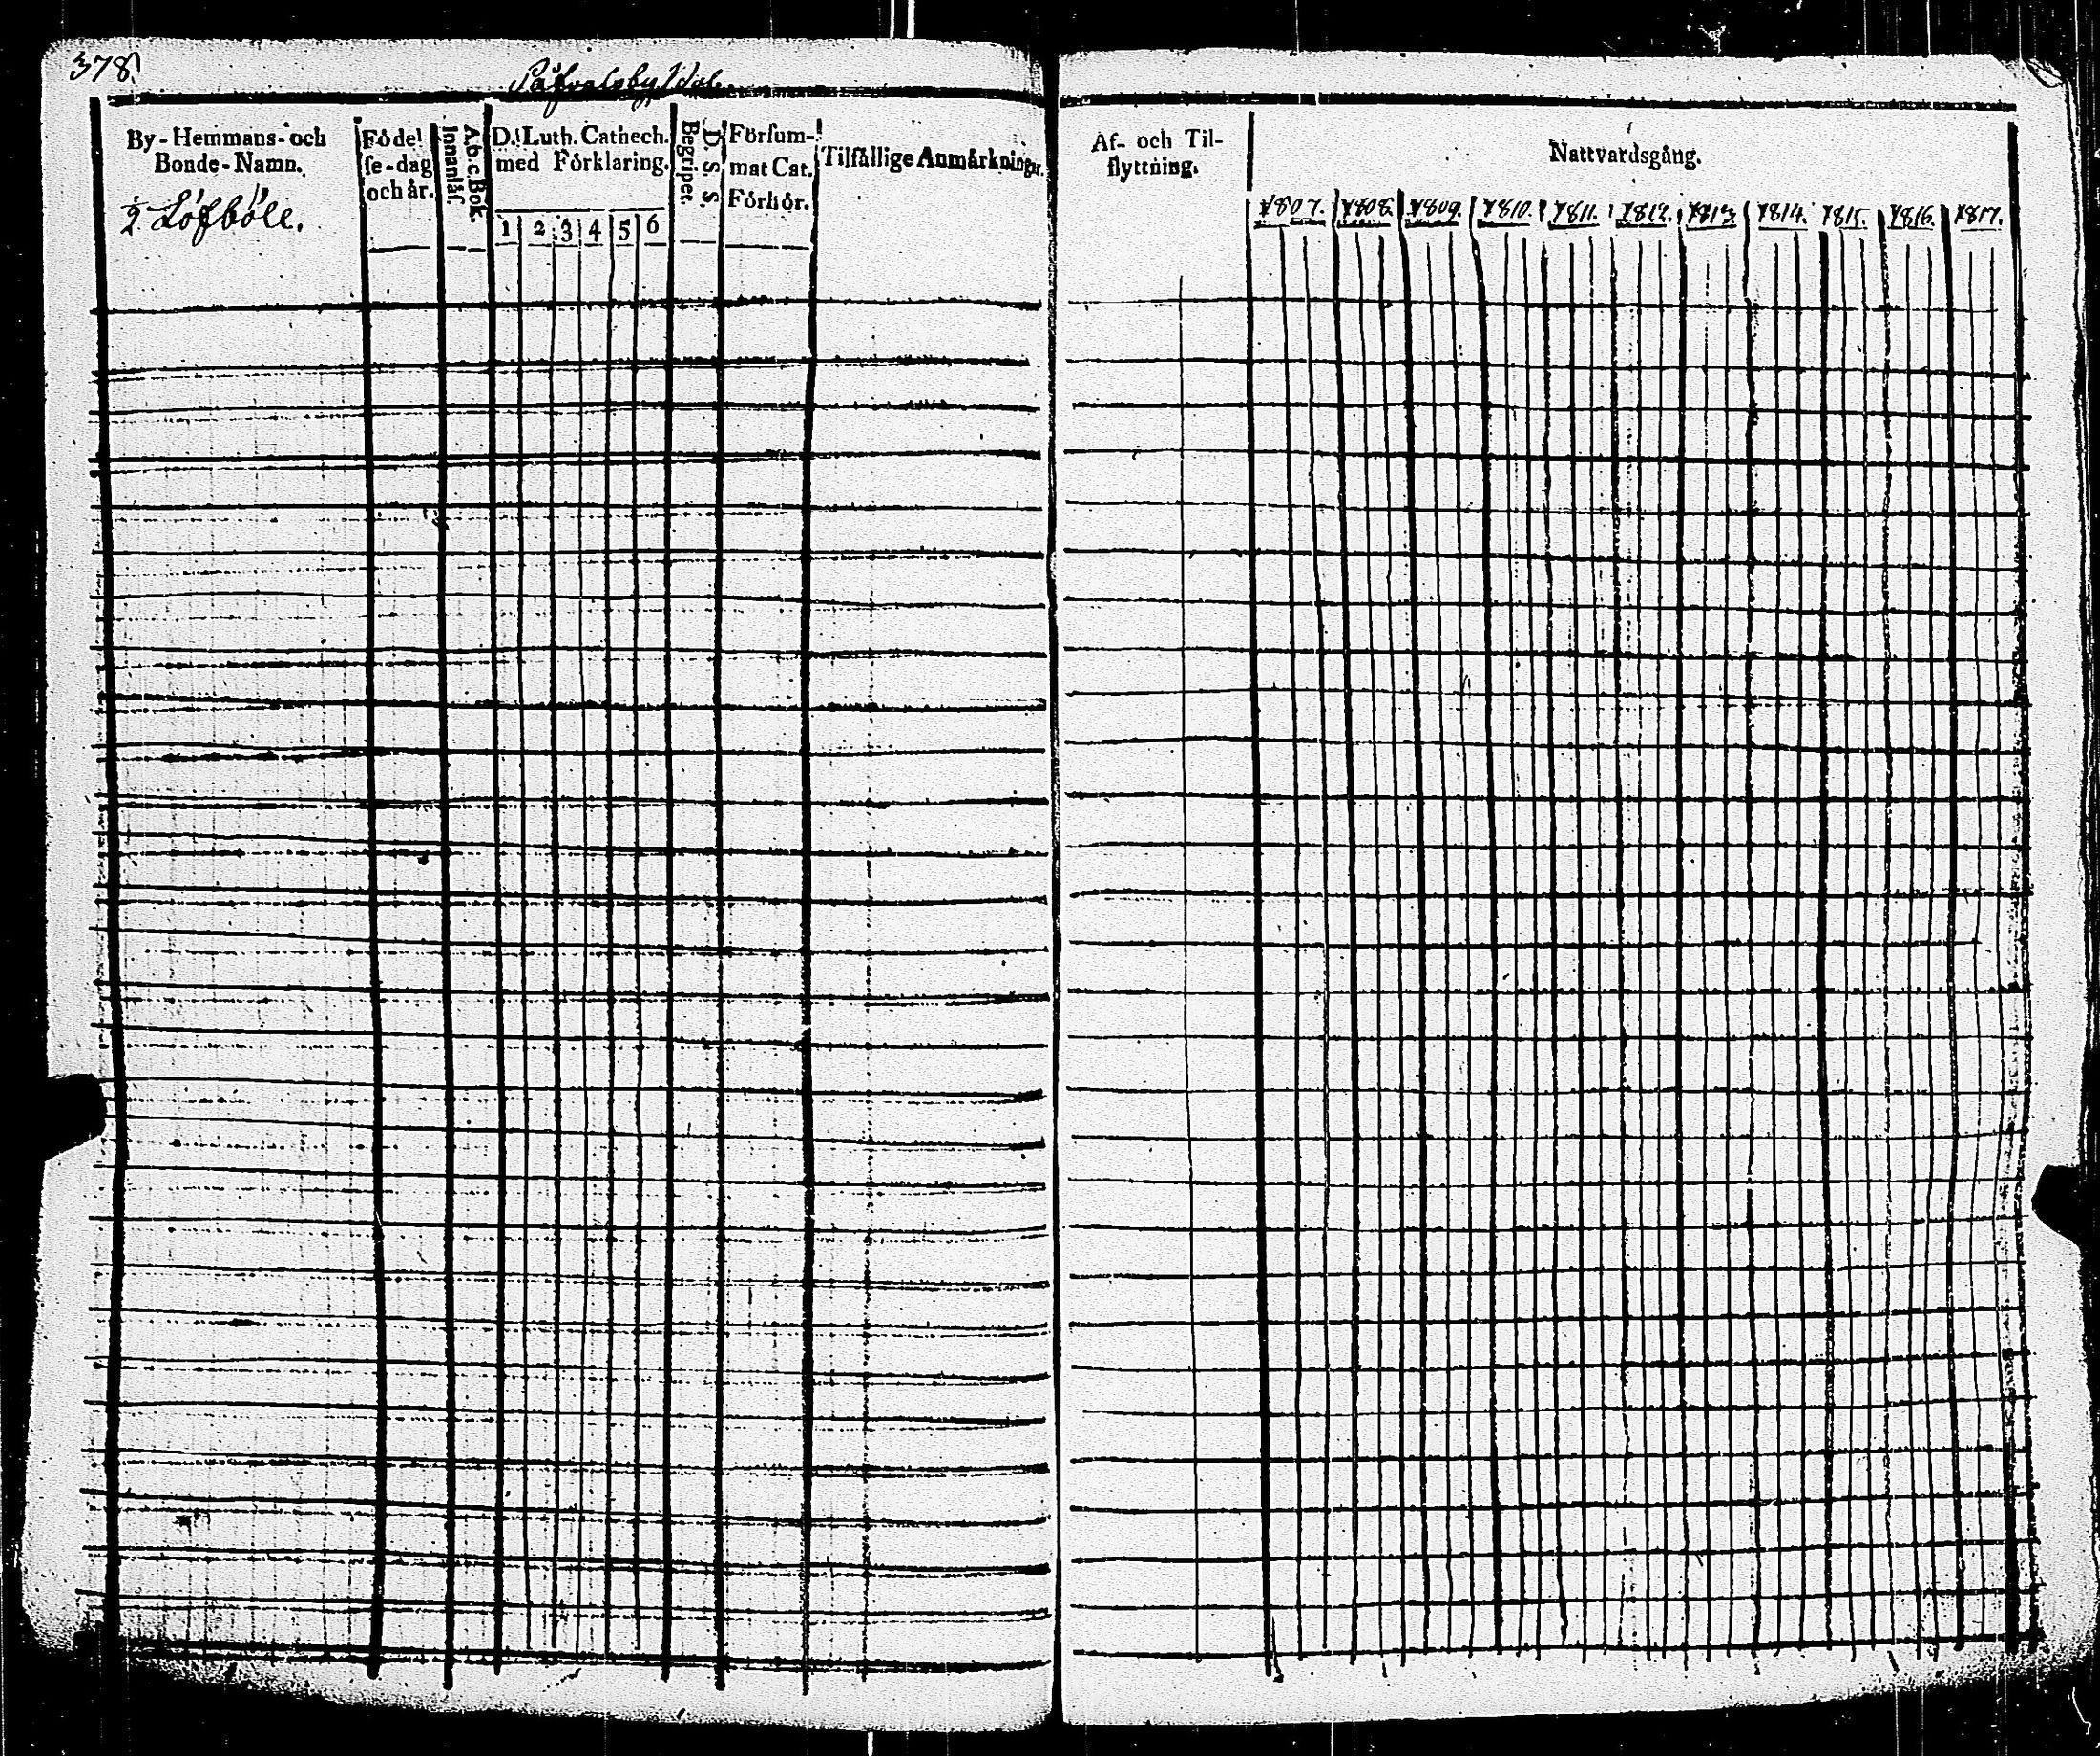 378.
By-Hemmans- och
Bonde-Namn.
2 Löfböle.
Födel
se-dag
och år.
Ab.c.Bok
Innanläs
D. Luth. Cathech.
med Förklaring.
1 2 3 4 5 6
D. s. s.
Begriper.
Försum-
mat Cat.
Förhör.
Tilfällige Anmärkningar.
Af- och Til-
flyttning.
Nattvardsgång.
1807. 1808. 1809. 1810. 1811. 1812. 1813 1814. 1815. 1816. 1817.